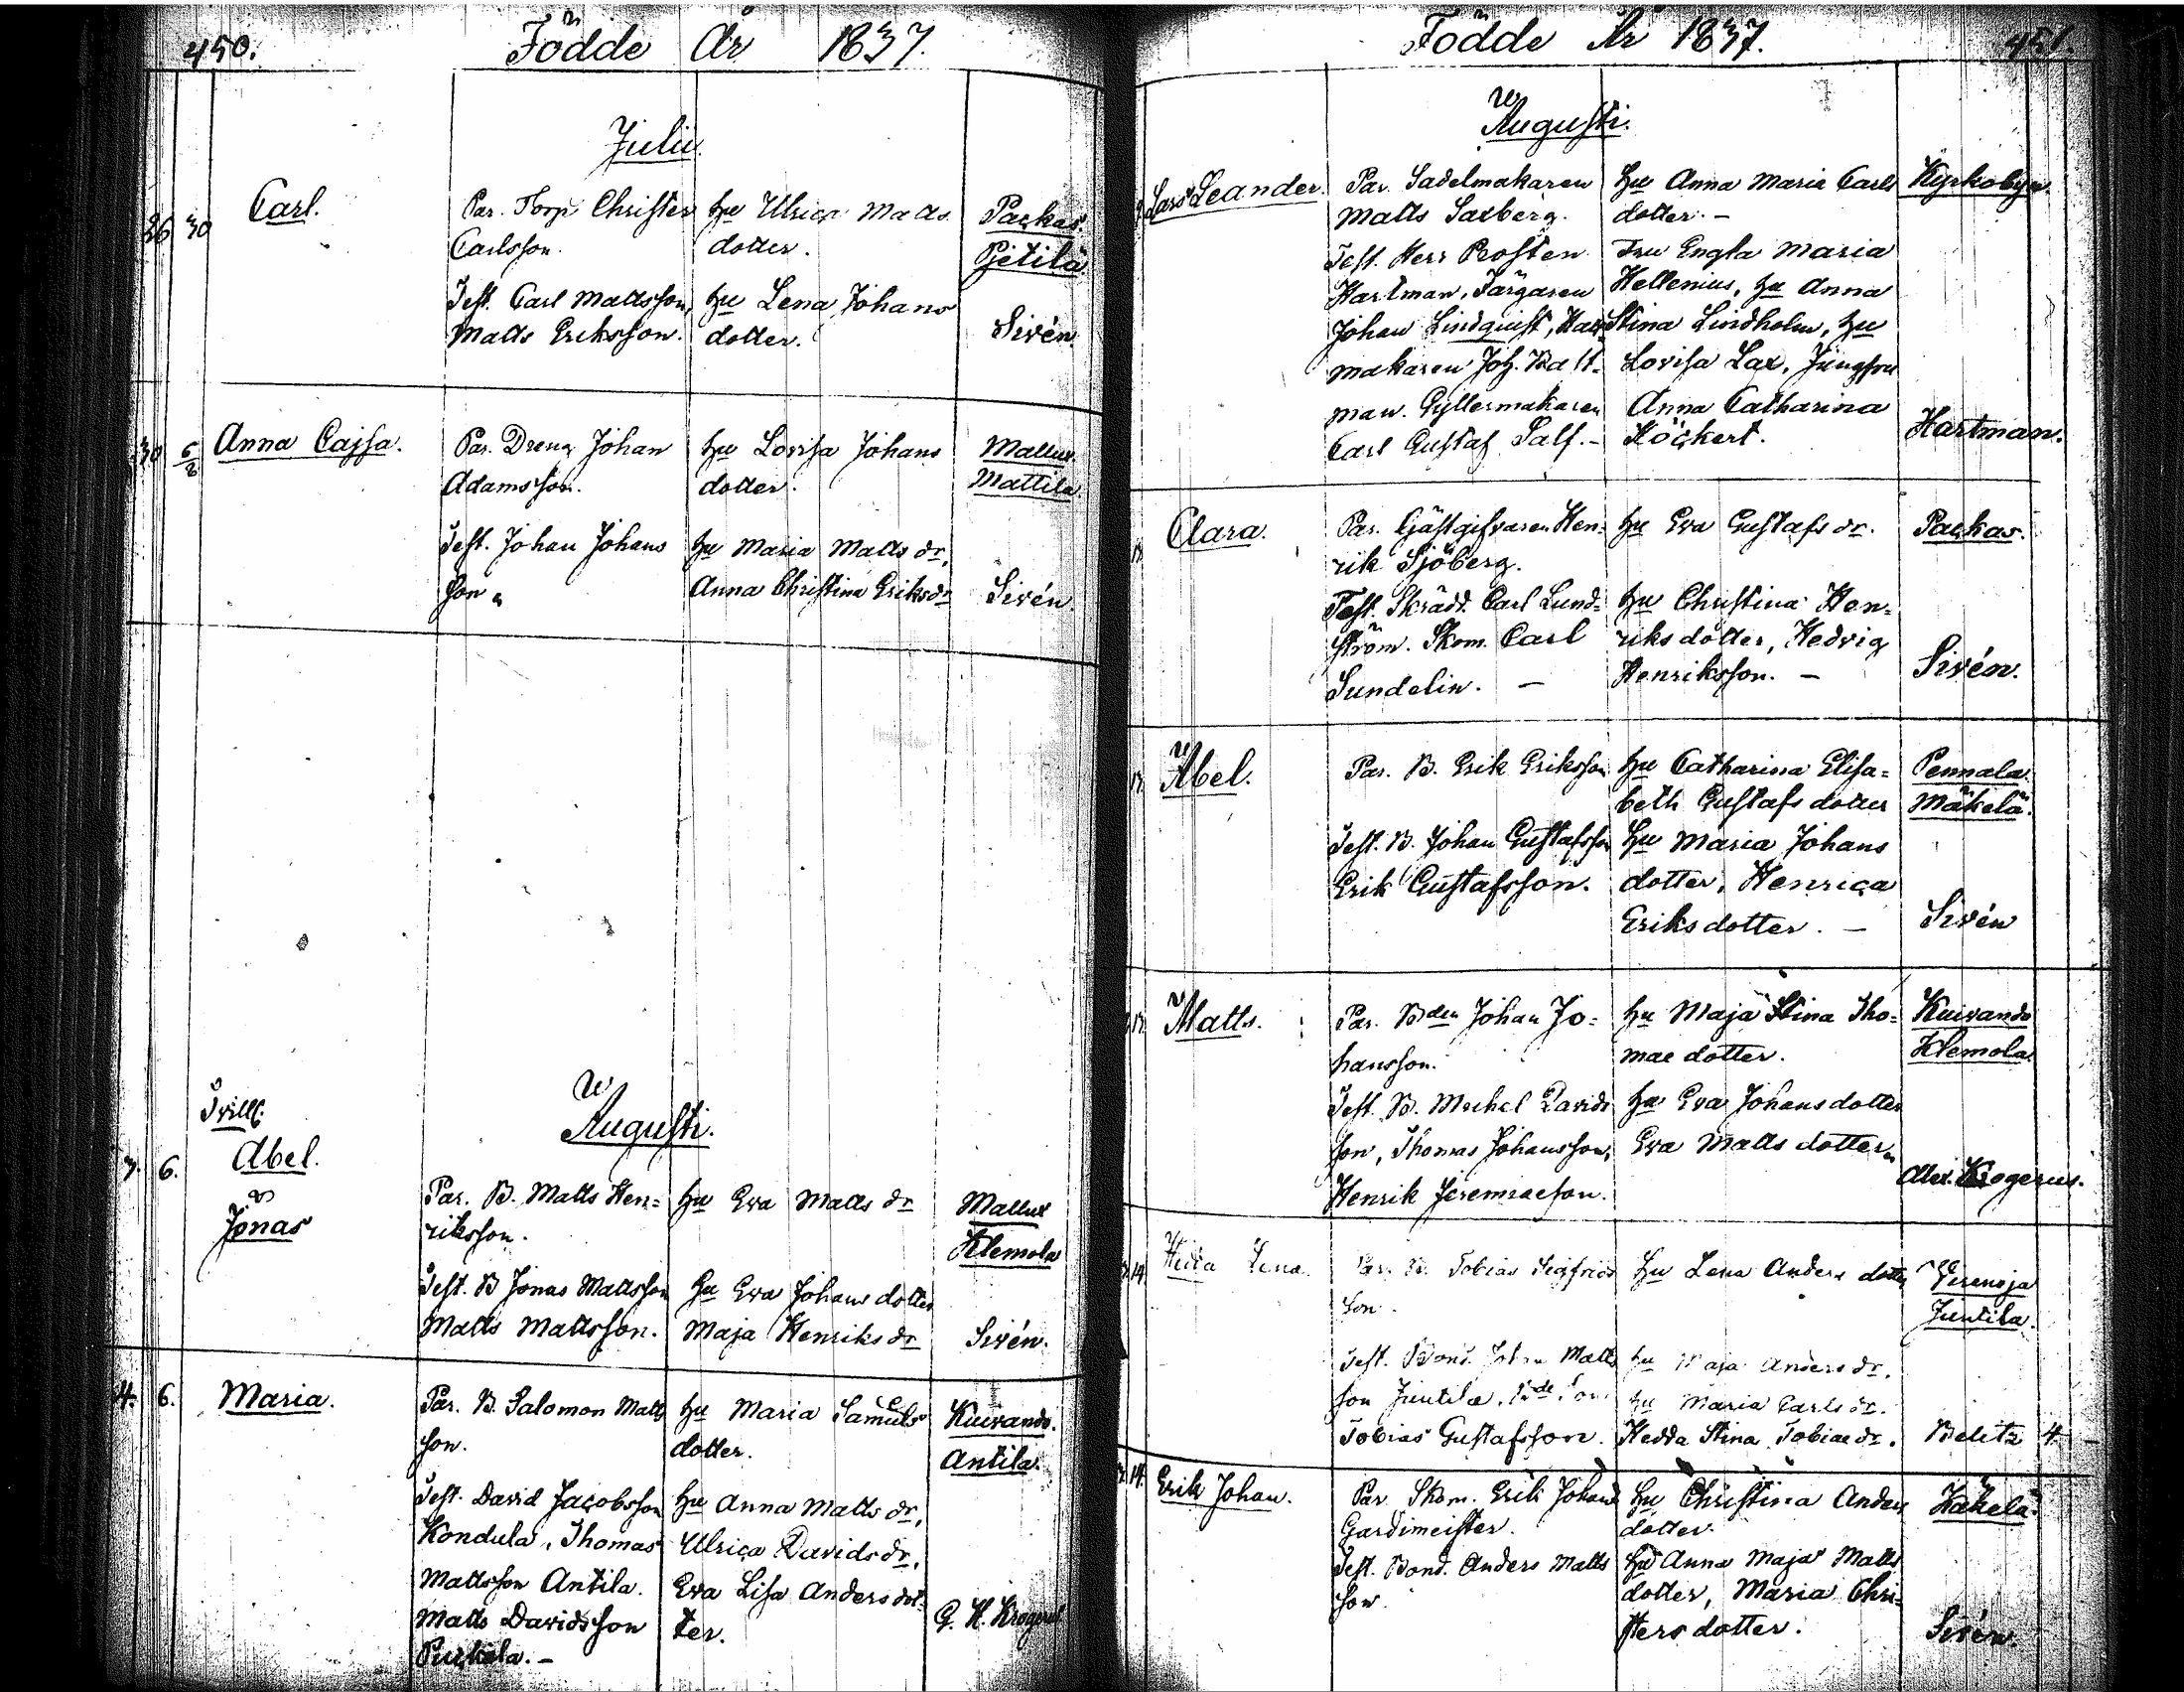 450.
Födde År 1837.
Julii.
26 30 Carl.
Par. Torp. Christer
Carlsson.
Hu Ulrica Matts
dotter.
Packas.
Pietilä.
Test. Carl Mattsson,
Matts Eriksson.
Hu Lena Johans
dotter.
Sirén.
30 6/8 Anna Cajsa.
Par. Dreng Johan
Adamsson.
Hu Lovisa Johans
dotter.
Mallus.
Mattila.
Test. Johan Johans
son
Hu Maria Matts dr,
Anna Christina Eriksdr
Sirén
Augusti.
Tvill.
6. Abel.
Jonas
Par. B. Matts Hen=
riksson.
Hu Eva Matts dr
Mallus
Klemola
Test. B Jonas Mattsson
Matts Mattsson.
Hu Eva Johans dotter
Maja Henriks dr
Sirén.
4. 6. Maria.
Par. B. Salomon Matts
son.
Hu Maria Samuels
dotter.
Kuivando.
Antila.
Test. David Jacobsson
Kondula, Thomas
Mattsson Antila.
Matts Davidsson
Purkala.-
Hu Anna Matts dr,
Ulrica Davids dr,
Eva Lisa Anders dot
ter.
G. H. Krogerus
451.
Födde År 1837.
Augusti.
Lars Leander.
Par. Sadelmakaren
Matts Saxberg.
Hu Anna Maria Carls
dotter.-
Kyrkobyn.
Test. Herr Prosten
Hartman, Färgaren
Johan Lindquist, Hatt
makaren Joh. Wall-
man. Gyllermakaren
Carl Gustaf Salf.-
Fru Engla Maria
Hellenius, Hu Anna
Stina Lindholm, Hu
Lovisa Lax, Jungfru
Anna Catharina
Höckert.
Hartman.
Clara.
Par. Gästgifvaren Hen=
rik Sjöberg.
Hu Eva Gustafs dr.
Packas.
Test. Skrädd. Carl Lund=
ström. Skom. Carl
Sundelin. -
Hu Christina Hen=
riksdotter, Hedvig
Henriksson. -
Sirén.
Abel.
Par. B. Erik Eriksson
Hu Catharina Elisa=
beth Gustafs dotter
Pennala.
Mäkelä.
Test. B. Johan Gustafsson
Erik Gustafsson.
Hu Maria Johans
dotter, Henrica
Eriksdotter. -
Sirén
Matts.
Par. Bden Johan Jo=
hansson.
Hu Maja Stina Tho=
mae dotter.
Kuivando
Klemola
Test. B. Michel Davids
son, Thomas Johansson,
Henrik Jeremiaeson.
Hu Eva Johans dotter
Eva Matts dotter
Alex. Krogerus.
14 Hedda Lena.
Par. B. Tobias Sigfrids
son.
Hu Lena Anders dotter
Virenoja
Juntila.
Test. Bond. Johan Matts
son Juntila,
Tobias Gustafsson.
Hu Maja Anders dr.
Hu Maria Carls dr.
Hedda Stina Tobiae dr.
Belitz 4.
14. Erik Johan.
Par. Skom. Erik Johan
Gardimeister.
Hu Christina Anders
dotter.
Käkelä.
Test. Bond. Anders Matts
son.
Hu Anna Maja Matts
dotter, Maria Chri=
sters dotter.
Sirén.